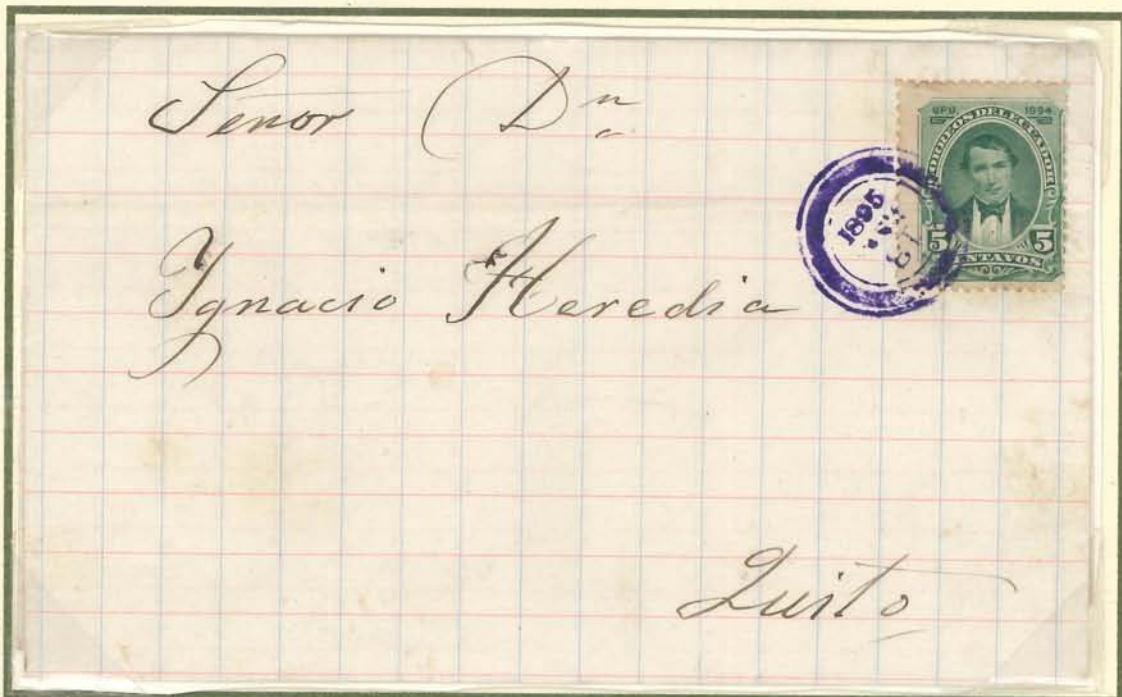 Señor Dn
Ygnacio Heredia
Quito
U.P.U. 1894
CORREOS DEL ECUADOR
5 CENTAVOS 5
1895